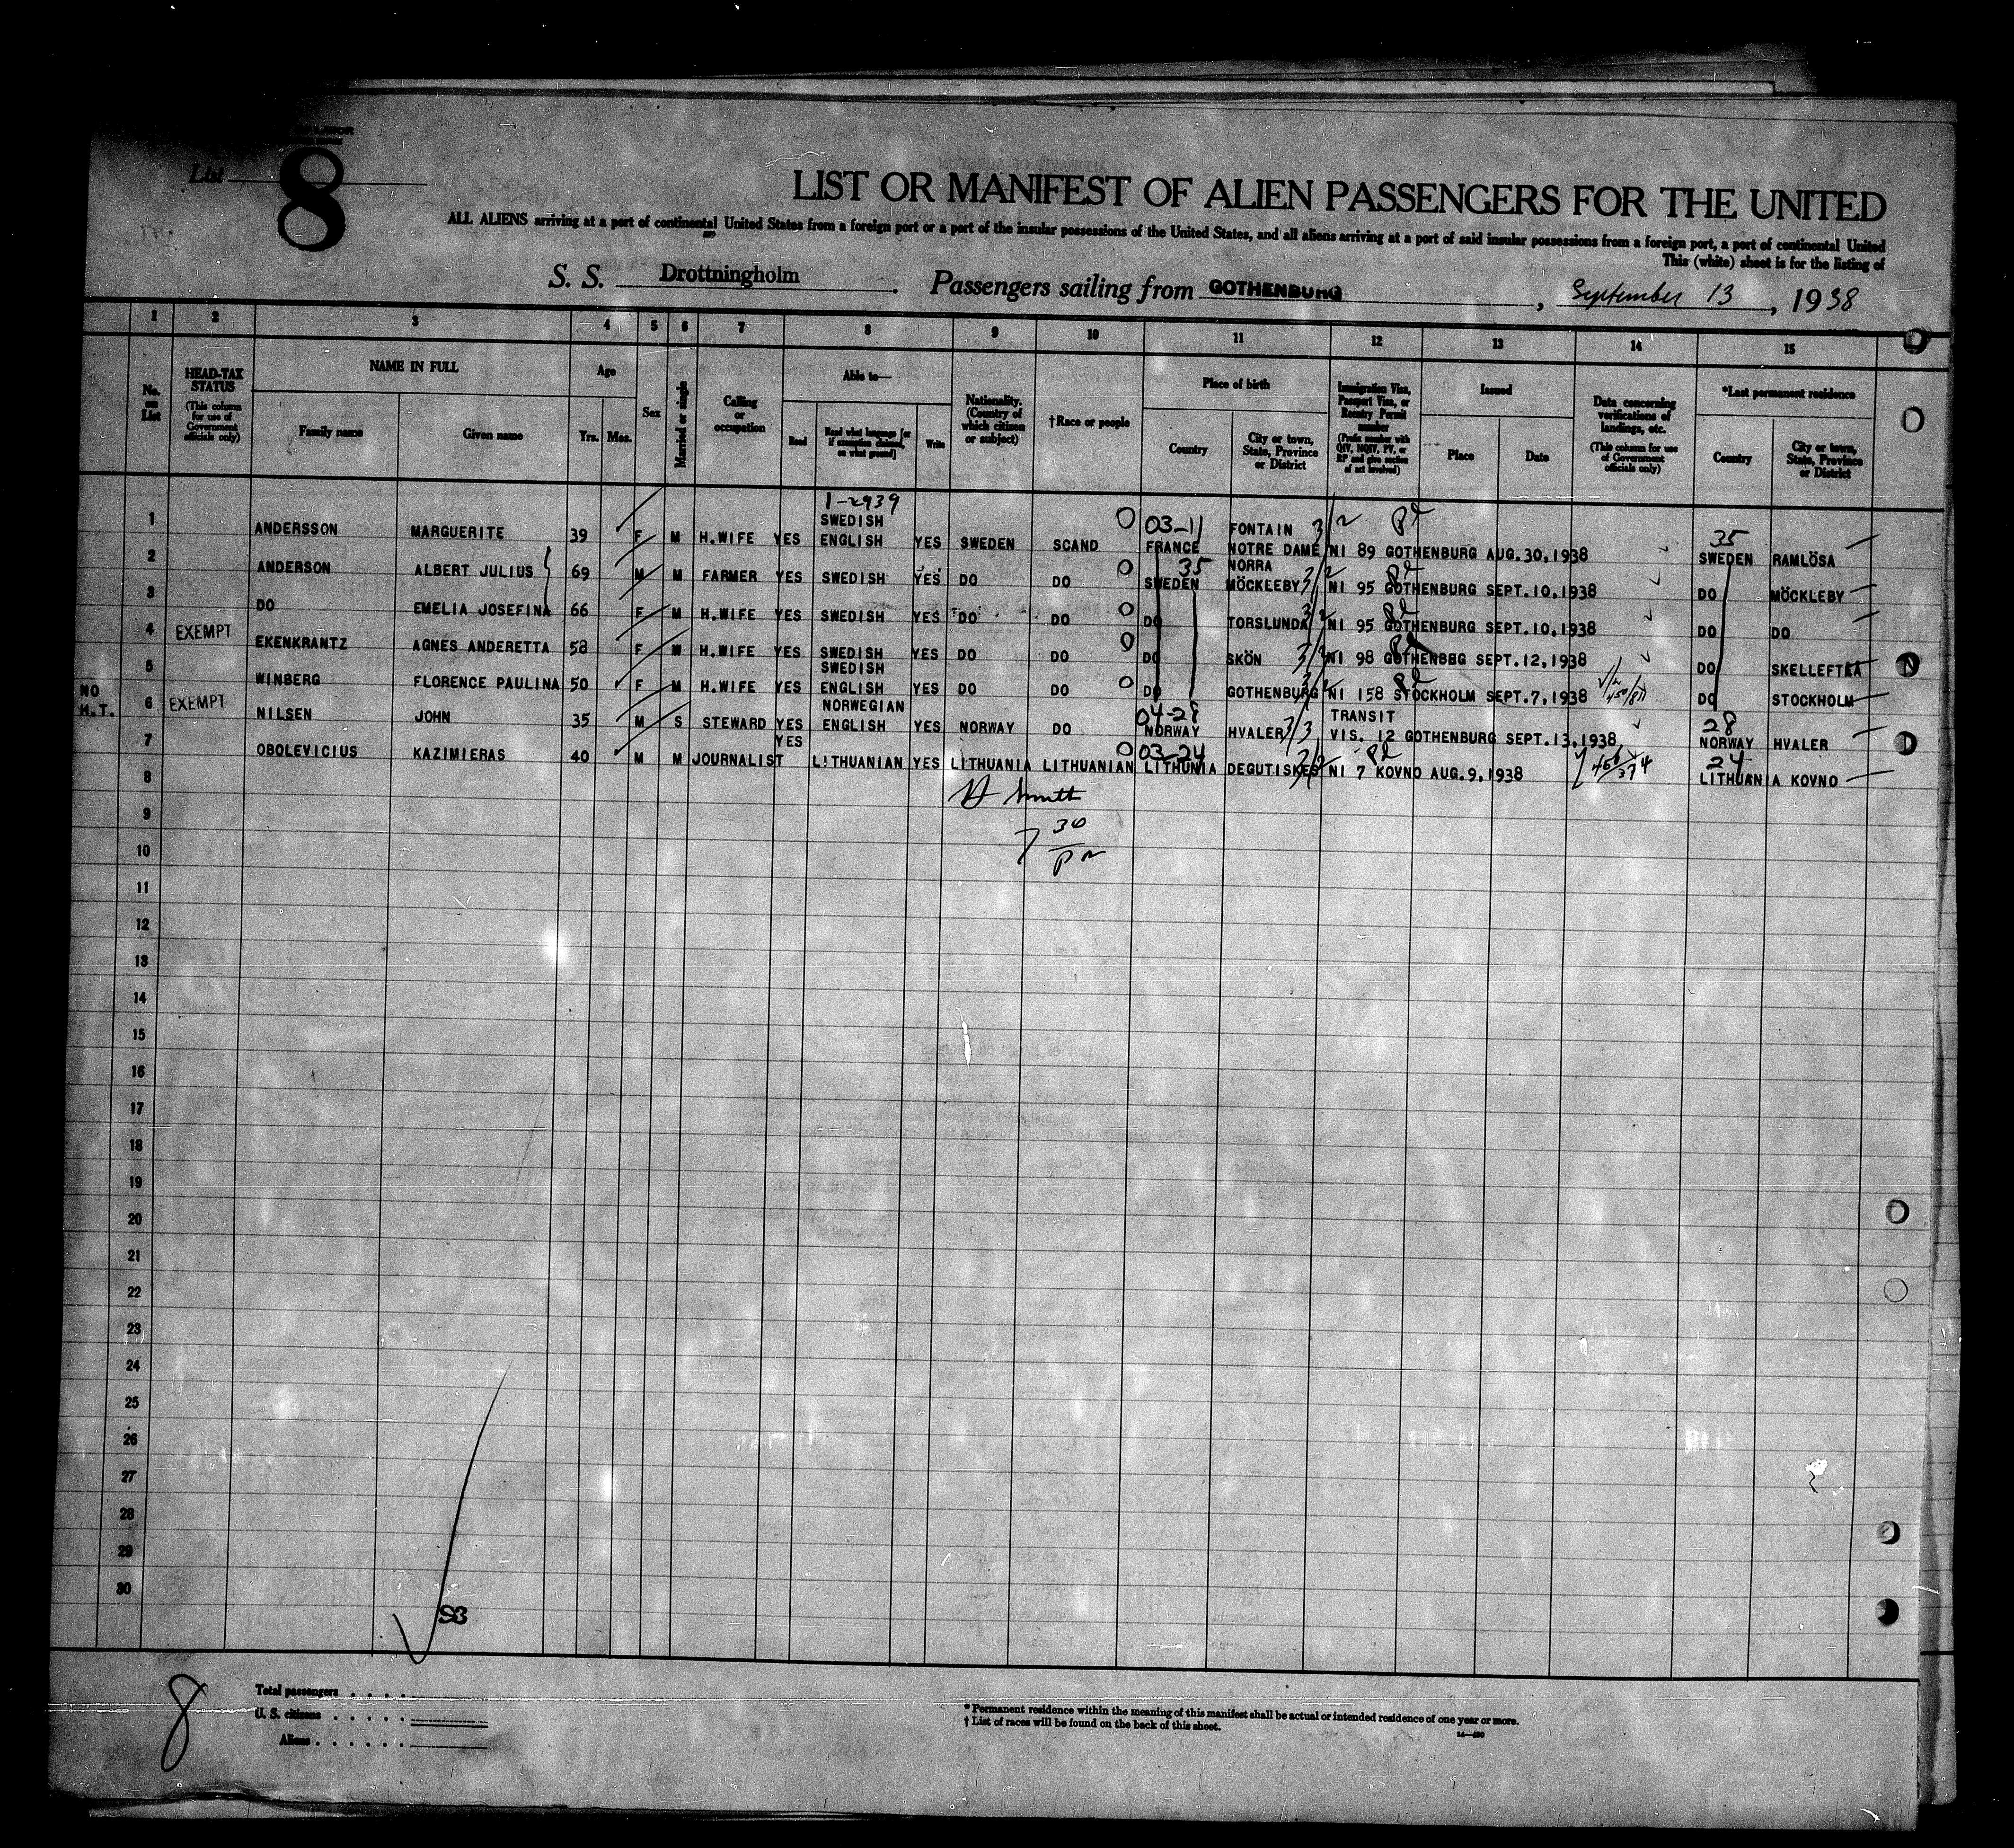 List 8
LIST OR MANIFEST OF ALIEN PASSENGERS FOR THE UNITED
ALL ALIENS arriving at a port of continental United States from a foreign port or a port of the insular possessions of the United States, and all aliens arriving at a port of said insular possessions from a foreign port, a port of continental United
This (white) sheet is for the listing of
S. S. Drottningholm. Passengers sailing from GOTHENBURG, September 13, 1938
1 2 3 4 5 6 7 8 9 10 11 12 13 14 15
No. on List
HEAD-TAX STATUS (This column for use of Government officials only)
NAME IN FULL
Family name Given name
Age
Yrs. Mos.
Sex
Married or single
Calling or occupation
Able to—
Read Read what language [or if exemption claimed, on what ground] Write
Nationality. (Country of which citizen or subject)
†Race or people
Place of birth
Country City or town, State, Province or District
Immigration Visa, Passport Visa, or Reentry Permit number (Prefix number with QIV, NQIV, PV, or RP and give section of act involved)
Issued
Place Date
Data concerning verifications of landings, etc. (This column for use of Government officials only)
*Last permanent residence
Country City or town, State, Province or District
1-2939
1 ANDERSSON MARGUERITE 39 F M H.WIFE YES SWEDISH ENGLISH YES SWEDEN SCAND 03-11 FRANCE FONTAIN NOTRE DAME NI 89 GOTHENBURG AUG.30,1938 35 SWEDEN RAMLÖSA
2 ANDERSON ALBERT JULIUS 69 M M FARMER YES SWEDISH YES DO DO 35 SWEDEN NORRA MÖCKLEBY NI 95 GOTHENBURG SEPT.10,1938 DO MÖCKLEBY
3 DO EMELIA JOSEFINA 66 F M H.WIFE YES SWEDISH YES DO DO DO TORSLUNDA NI 95 GOTHENBURG SEPT.10,1938 DO DO
4 EXEMPT EKENKRANTZ AGNES ANDERETTA 58 F W H.WIFE YES SWEDISH YES DO DO DO SKÖN NI 98 GOTHENBBG SEPT.12,1938 DO SKELLEFTEÅ
5 WINBERG FLORENCE PAULINA 50 F M H.WIFE YES SWEDISH ENGLISH YES DO DO DO GOTHENBURG NI 158 STOCKHOLM SEPT.7,1938 DO STOCKHOLM
NO H.T. 6 EXEMPT NILSEN JOHN 35 M S STEWARD YES NORWEGIAN ENGLISH YES NORWAY DO 04-28 NORWAY HVALER 3/3 TRANSIT VIS. 12 GOTHENBURG SEPT.13,1938 28 NORWAY HVALER
7 OBOLEVICIUS KAZIMIERAS 40 M M JOURNALIST YES LITHUANIAN YES LITHUANIA LITHUANIAN 03-24 LITHUNIA DEGUTISKES NI 7 KOVNO AUG.9,1938 24 LITHUANIA KOVNO
8
9
7 30
10
PM
11
12
13
14
15
16
17
18
19
20
21
22
23
24
25
26
27
28
29
30
S3
8
Total passengers . . . .
U. S. citizens . . . . .
Aliens . . . . . .
* Permanent residence within the meaning of this manifest shall be actual or intended residence of one year or more.
† List of races will be found on the back of this sheet.